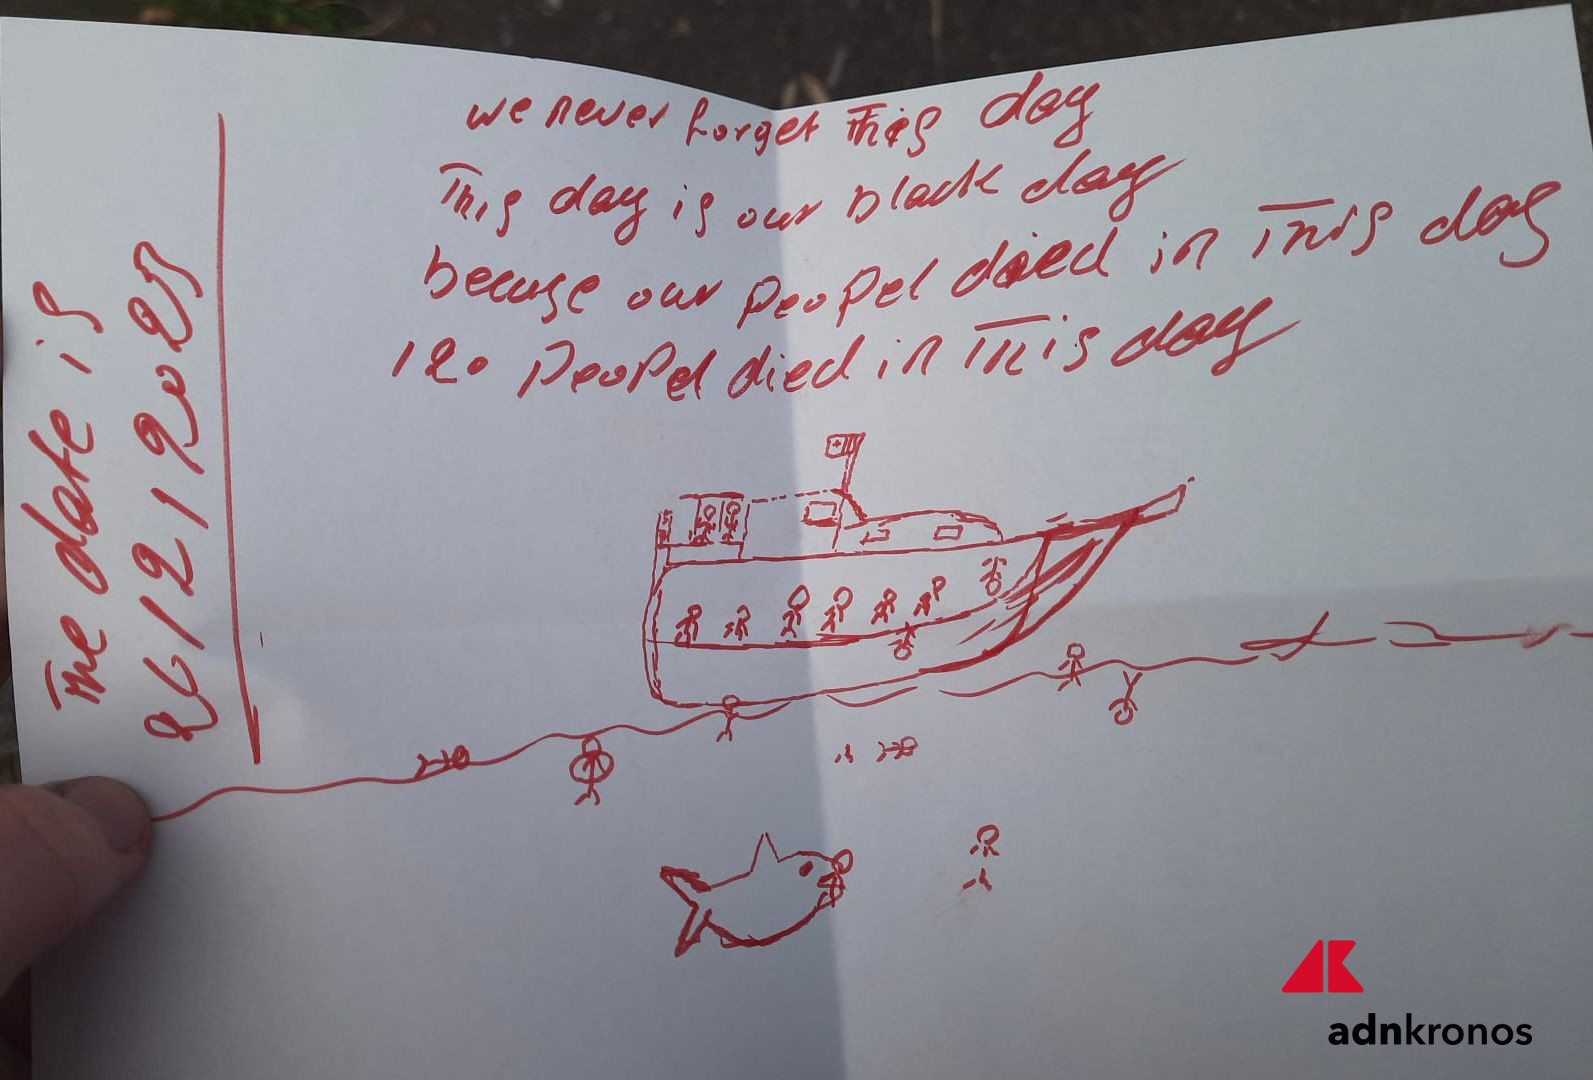 we never forget This day
This day is our black day
becuse our peopel died in This day
120 peopel died in This day
The date is
26/2/2023
adnkronos